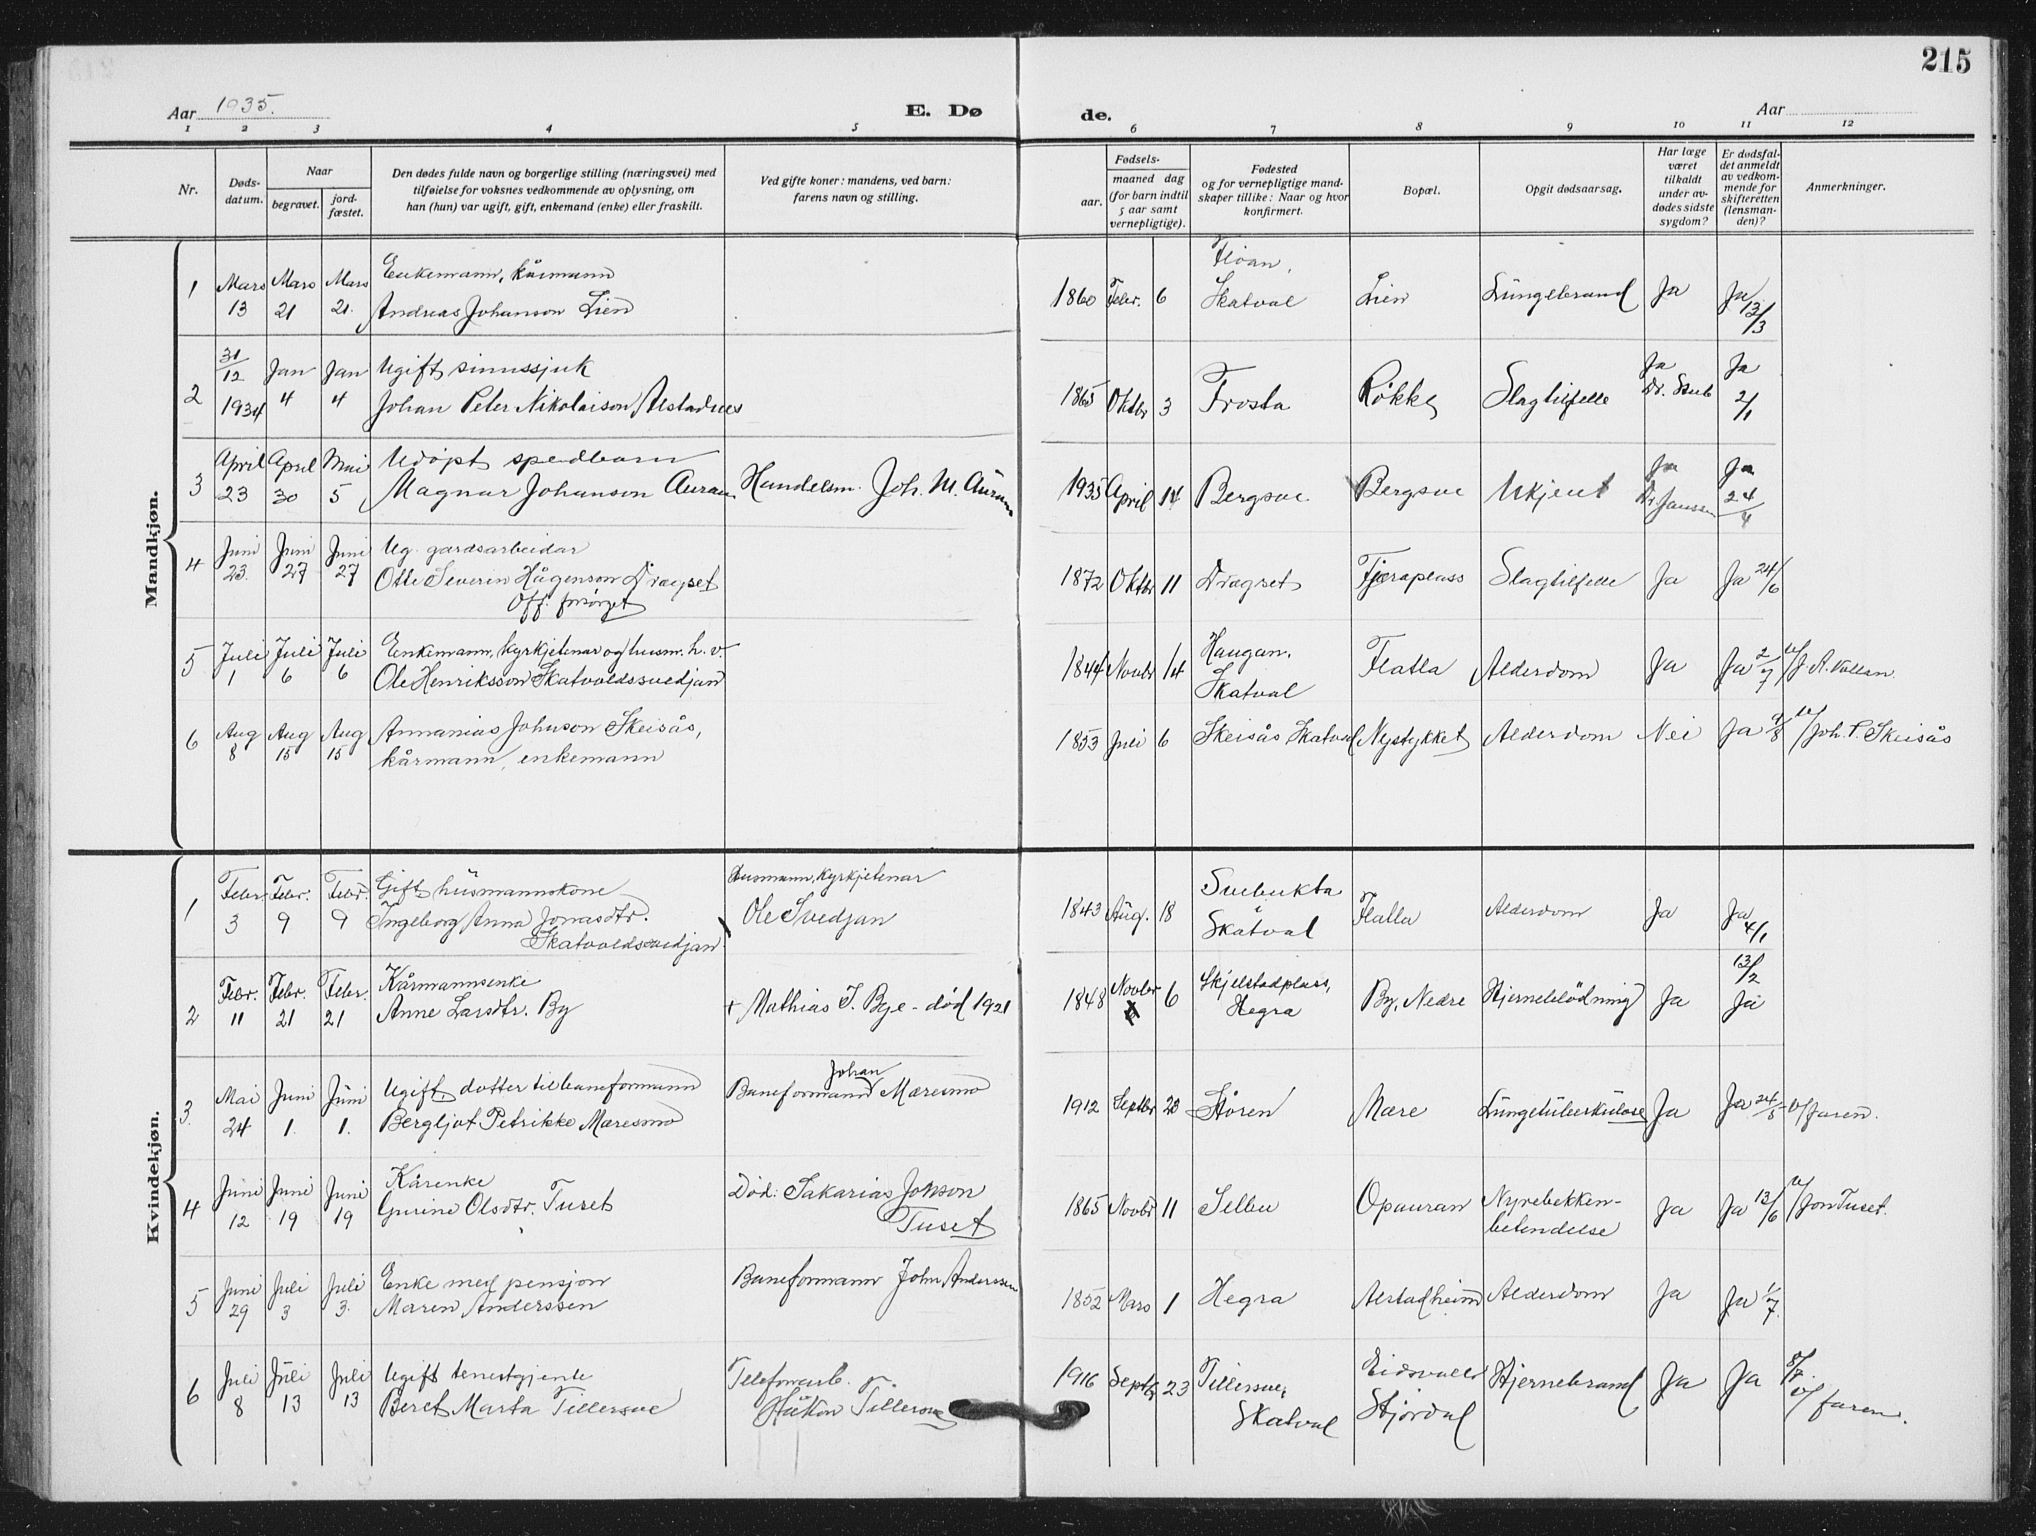 215
Aar 1935.
E. Døde.
Aar
1 2 3 4 5 6 7 8 9 10 11 12
Nr.
Døds-
datum.
Naar
begravet.
jord-
fæstet.
Den dødes fulde navn og borgerlige stilling (næringsvei) med
tilføielse for voksnes vedkommende av oplysning, om
han (hun) var ugift, gift, enkemand (enke) eller fraskilt.
Ved gifte koner: mandens, ved barn:
farens navn og stilling.
Fødsels-
aar.
maaned dag
(for barn indtil
5 aar samt
vernepligtige).
Fødested
og for vernepligtige mand-
skaper tillike: Naar og hvor
konfirmert.
Bopæl.
Opgit dødsaarsag.
Har læge
været
tilkaldt
under av-
dødes sidste
sygdom?
Er dødsfal-
det anmeldt
av vedkom-
mende for
skifteretten
(lensman-
den)?
Anmerkninger.
Mandkjøn.
1 Mars 13 Mars 21 Mars 21. Enkemann, kårmann
Andreas Johanson Lien
1860 Febr. 6 Floan, Skatval Lien Lungebrand Ja Ja 13/3
2 31/12 1934 Jan 4 Jan 4 Ugift sinnssjuk
Johan Peter Nikolaison Alstadnes
1865 Oktbr 3 Frosta Røkke Slagtilfelle Ja Dr. Stub Ja 2/1
3 April 23 April 30 Mai 5 Udøpt spedbarn
Magnar Johanson Auran Handelsm. Joh. M. Auran
1935 April 14 Bergsve Bergsve Ukjent Ja Dr. Janssen Ja 24/4
4 Juni 23. Juni 27 Juni 27 Ug. gardsarbeidar
Otte Severin Hågenson Dragset
Off. forsørget
1872 Oktbr 11 Dragset Fjæraplass Slagtilfelle Ja Ja 24/6
5 Juli 1 Juli 6 Juli 6 Enkemann, kyrkjetenar og husm. h. v.
Ole Henriksson Skatvoldssvedjan
1844 Novbr 14 Haugan, Skatval Flatla Alderdom Ja Ja 2/7 v/ J. A. Vollan.
6 Aug 8 Aug 15 Aug 15 Annanias Johnson Skeisås,
kårmann, enkemann
1853 Juli 6 Skeisås Skatval Nystykket Alderdom Nei Ja 9/8 v/ Joh. P. Skeisås
Kvindekjøn.
1 Febr. 3 Febr. 9 Febr. 9 Gift husmannskone
Ingeborg Anna Jonasdtr.
Skatvoldssvedjan
Husmann, kyrkjetenar
Ole Svedjan
1843 Aug. 18 Svebukta Skatval Flatla Alderdom Ja Ja 4/1
2 Febr. 11 Febr. 21 Febr. 21 Kårmannsenke
Anne Larsdtr. By
+ Mathias J. Bye - død 1921
1848 Novbr 6 Skjelstadplass, Hegra By, Nedre Hjerneblødning Ja 13/2 Ja
3. Mai 24 Juni 1. Juni 1. Ugift, datter til baneformann
Bergljot Petrikke Mæresmo
Baneformann Johan Mæresmo
1912 Septbr 23 Støren Mære Lungetuberkulose Ja Ja 24/5 v/ faren.
4 Juni 12 Juni 19 Juni 19 Kårenke
Gurine Olsdtr. Tuset
Død: Sakarias Jonson
Tuset
1865 Novbr 11 Selbu Opauran Nyrebekken-
betendelse Ja Ja 13/6 v/ Jon Tuset.
5 Juni 29 Juli 3 Juli 3. Enke med pensjon
Maren Anderssen
Baneformann John Anderssen
1852 Mars 1 Hegra Alstadheim Alderdom Ja Ja 1/7.
6 Juli 8 Juli 13 Juli 13 Ugift tenestgjente
Beret Marta Tillersve
Telefonarb.
Håkon Tillersve
1916 Septbr 23 Tillersve, Skatval Eidsvalls Stjørdal Hjernebrand Ja Ja 8/7. v/ faren.